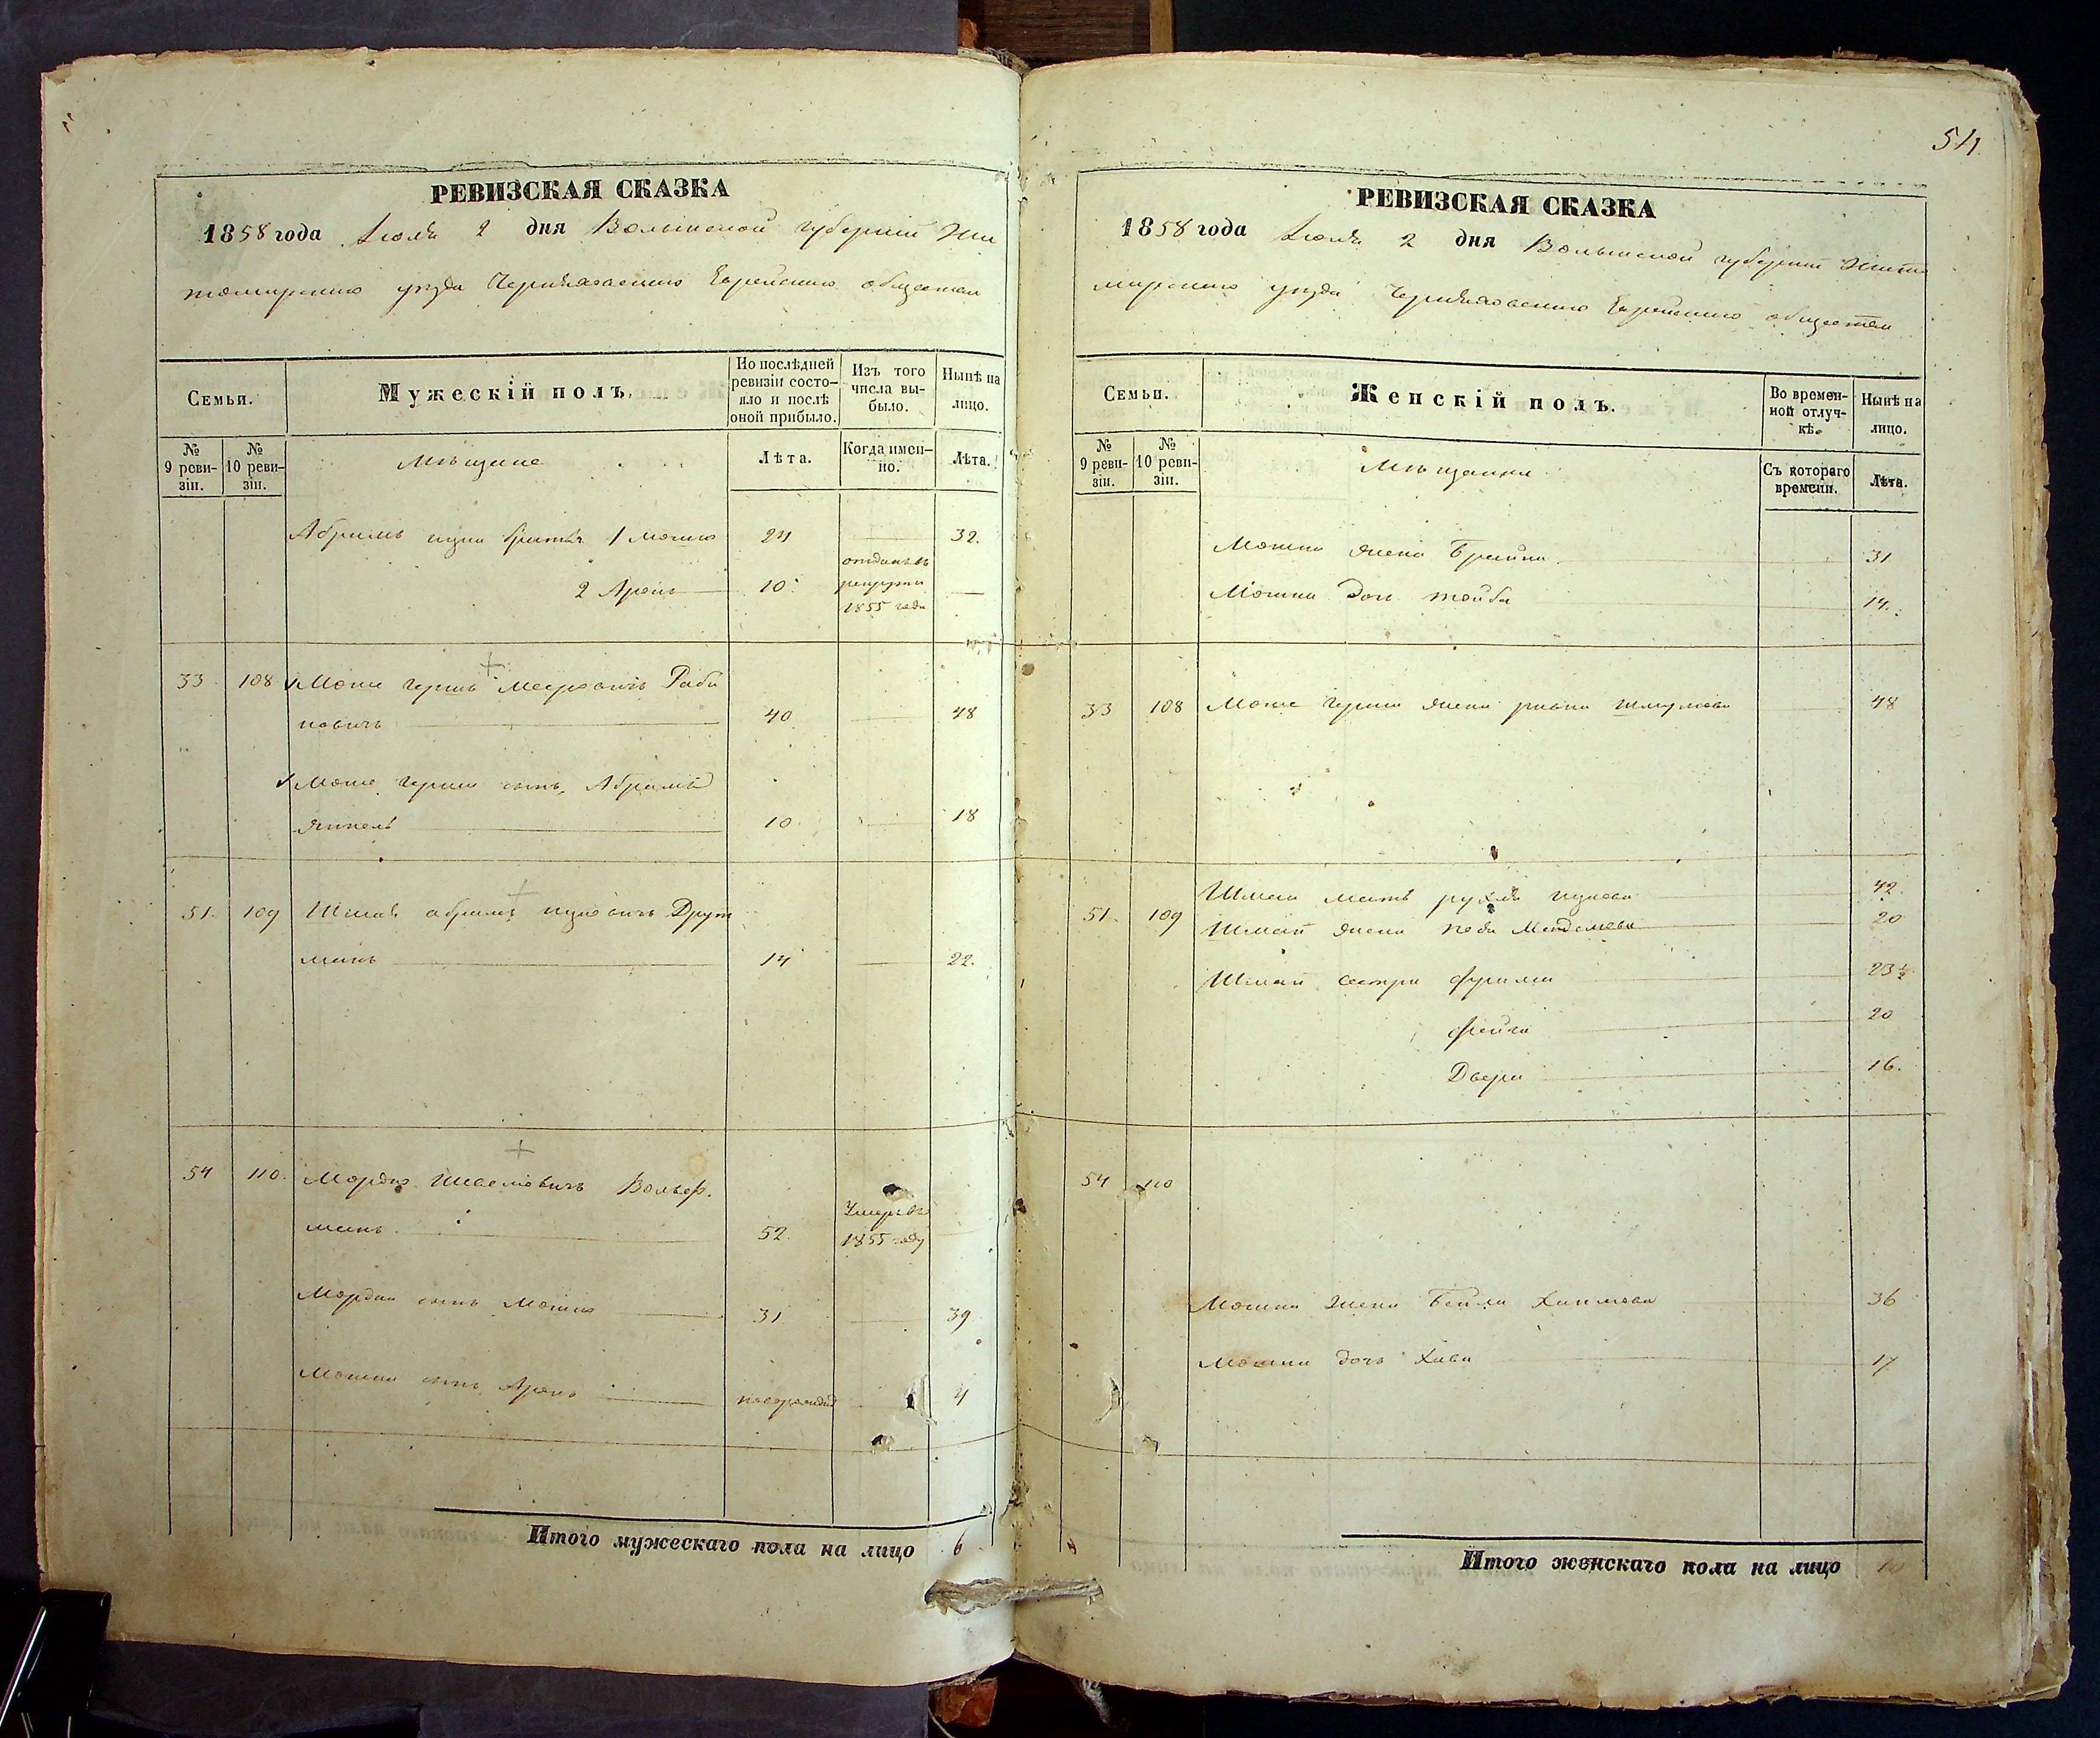 РЕВИЗСКАЯ СКАЗКА
1858 года Іюля 2 дня Волынской губерніи Жи
томирскаго уѣзда Черняховскаго Еврейскаго общества
Семьи.
Мужескій полъ.
По послѣдней ревизіи состояло и послѣ оной прибыло.
Изъ того числа выбыло.
Нынѣ на лицо.
№ 9 ревизіи.
№ 10 ревизіи.
Мѣщане
Лѣта.
Когда именно.
Лѣта.
Абрама братья 1 Мошко 24 32.
2 Аронъ 10 отданъ въ рекруты 1855 года
33 108 Моше Гершъ Мееровичъ Раби
новичъ 40 48
Моше Герша сынъ Абрамъ
Янкель 10 18
51. 109 Шмай Абрамъ Ицковичъ Друк
манъ 14 22.
54 110. Мордко Вольф.
манъ 52. Умеръ въ 1855 году
Мордка сынъ Мошко 31 39
Мошка сынъ Аронъ новорожден 4
Итого мужескаго пола на лицо 6
54
РЕВИЗСКАЯ СКАЗКА
1858 года Іюля 2 дня Волынской губерніи Жито
мирскаго уѣзда Черняховскаго Еврейскаго общества
Семьи.
Женскій полъ.
Во временной отлучкѣ.
Нынѣ на лицо.
№ 9 ревизіи.
№ 10 ревизіи.
Мѣщанки
Съ котораго времени.
Лѣта.
Мошка жена Брайна 31
Мошка дочь Тойба 14.
33 108 Моше Герша жена Ривка Шмулева 48
Шмая мать Рухля Ицкова 42.
51. 109 Шмая жена Песя Менделева 20
Шмая сестры Фрима 23
Фейга 20
Двера 16.
54 110
Мошка жена Бейла Хаимова 36
Мошка дочь Хава 17
Итого женскаго пола на лицо 10